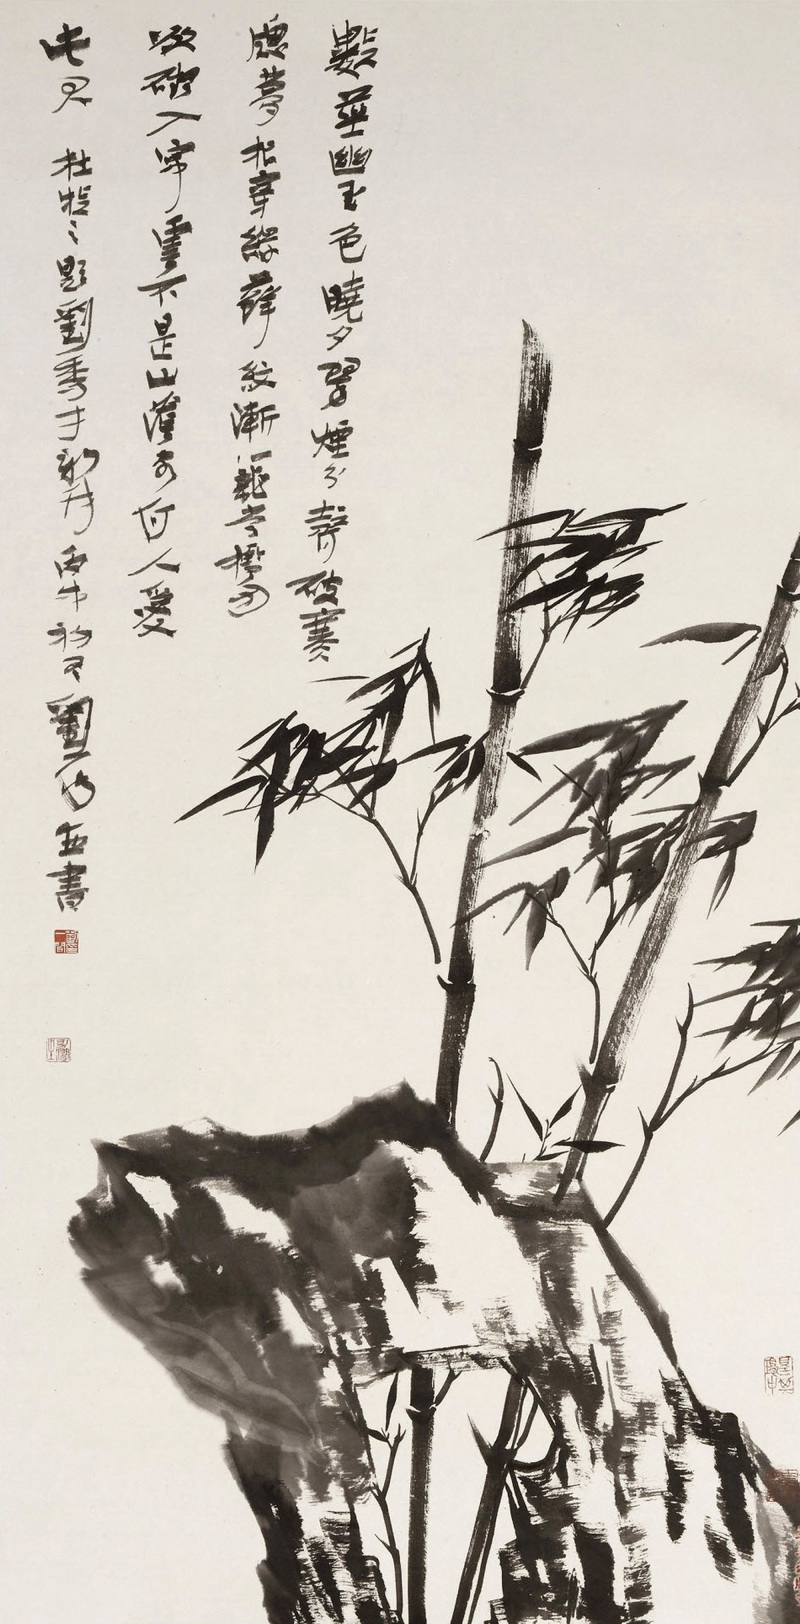 數莖幽玉色曉夕翠煙分聲破寒
牕夢根穿綠蘚紋漸籠當檻日
欲礙入簾雲不是山陰客何人愛
此君 杜牧之題劉秀才新竹 丙申初夏 劉一聞並書